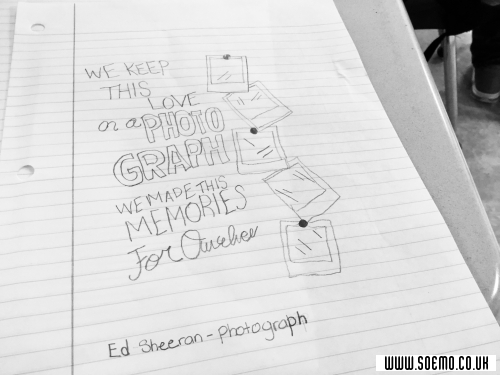 WE KEEP
THIS
LOVE
on a PHOTO
GRAPH
WE MADE THIS
MEMORIES
For Ourselves
Ed Sheeran - photograph
WWW.SOEMO.CO.UK